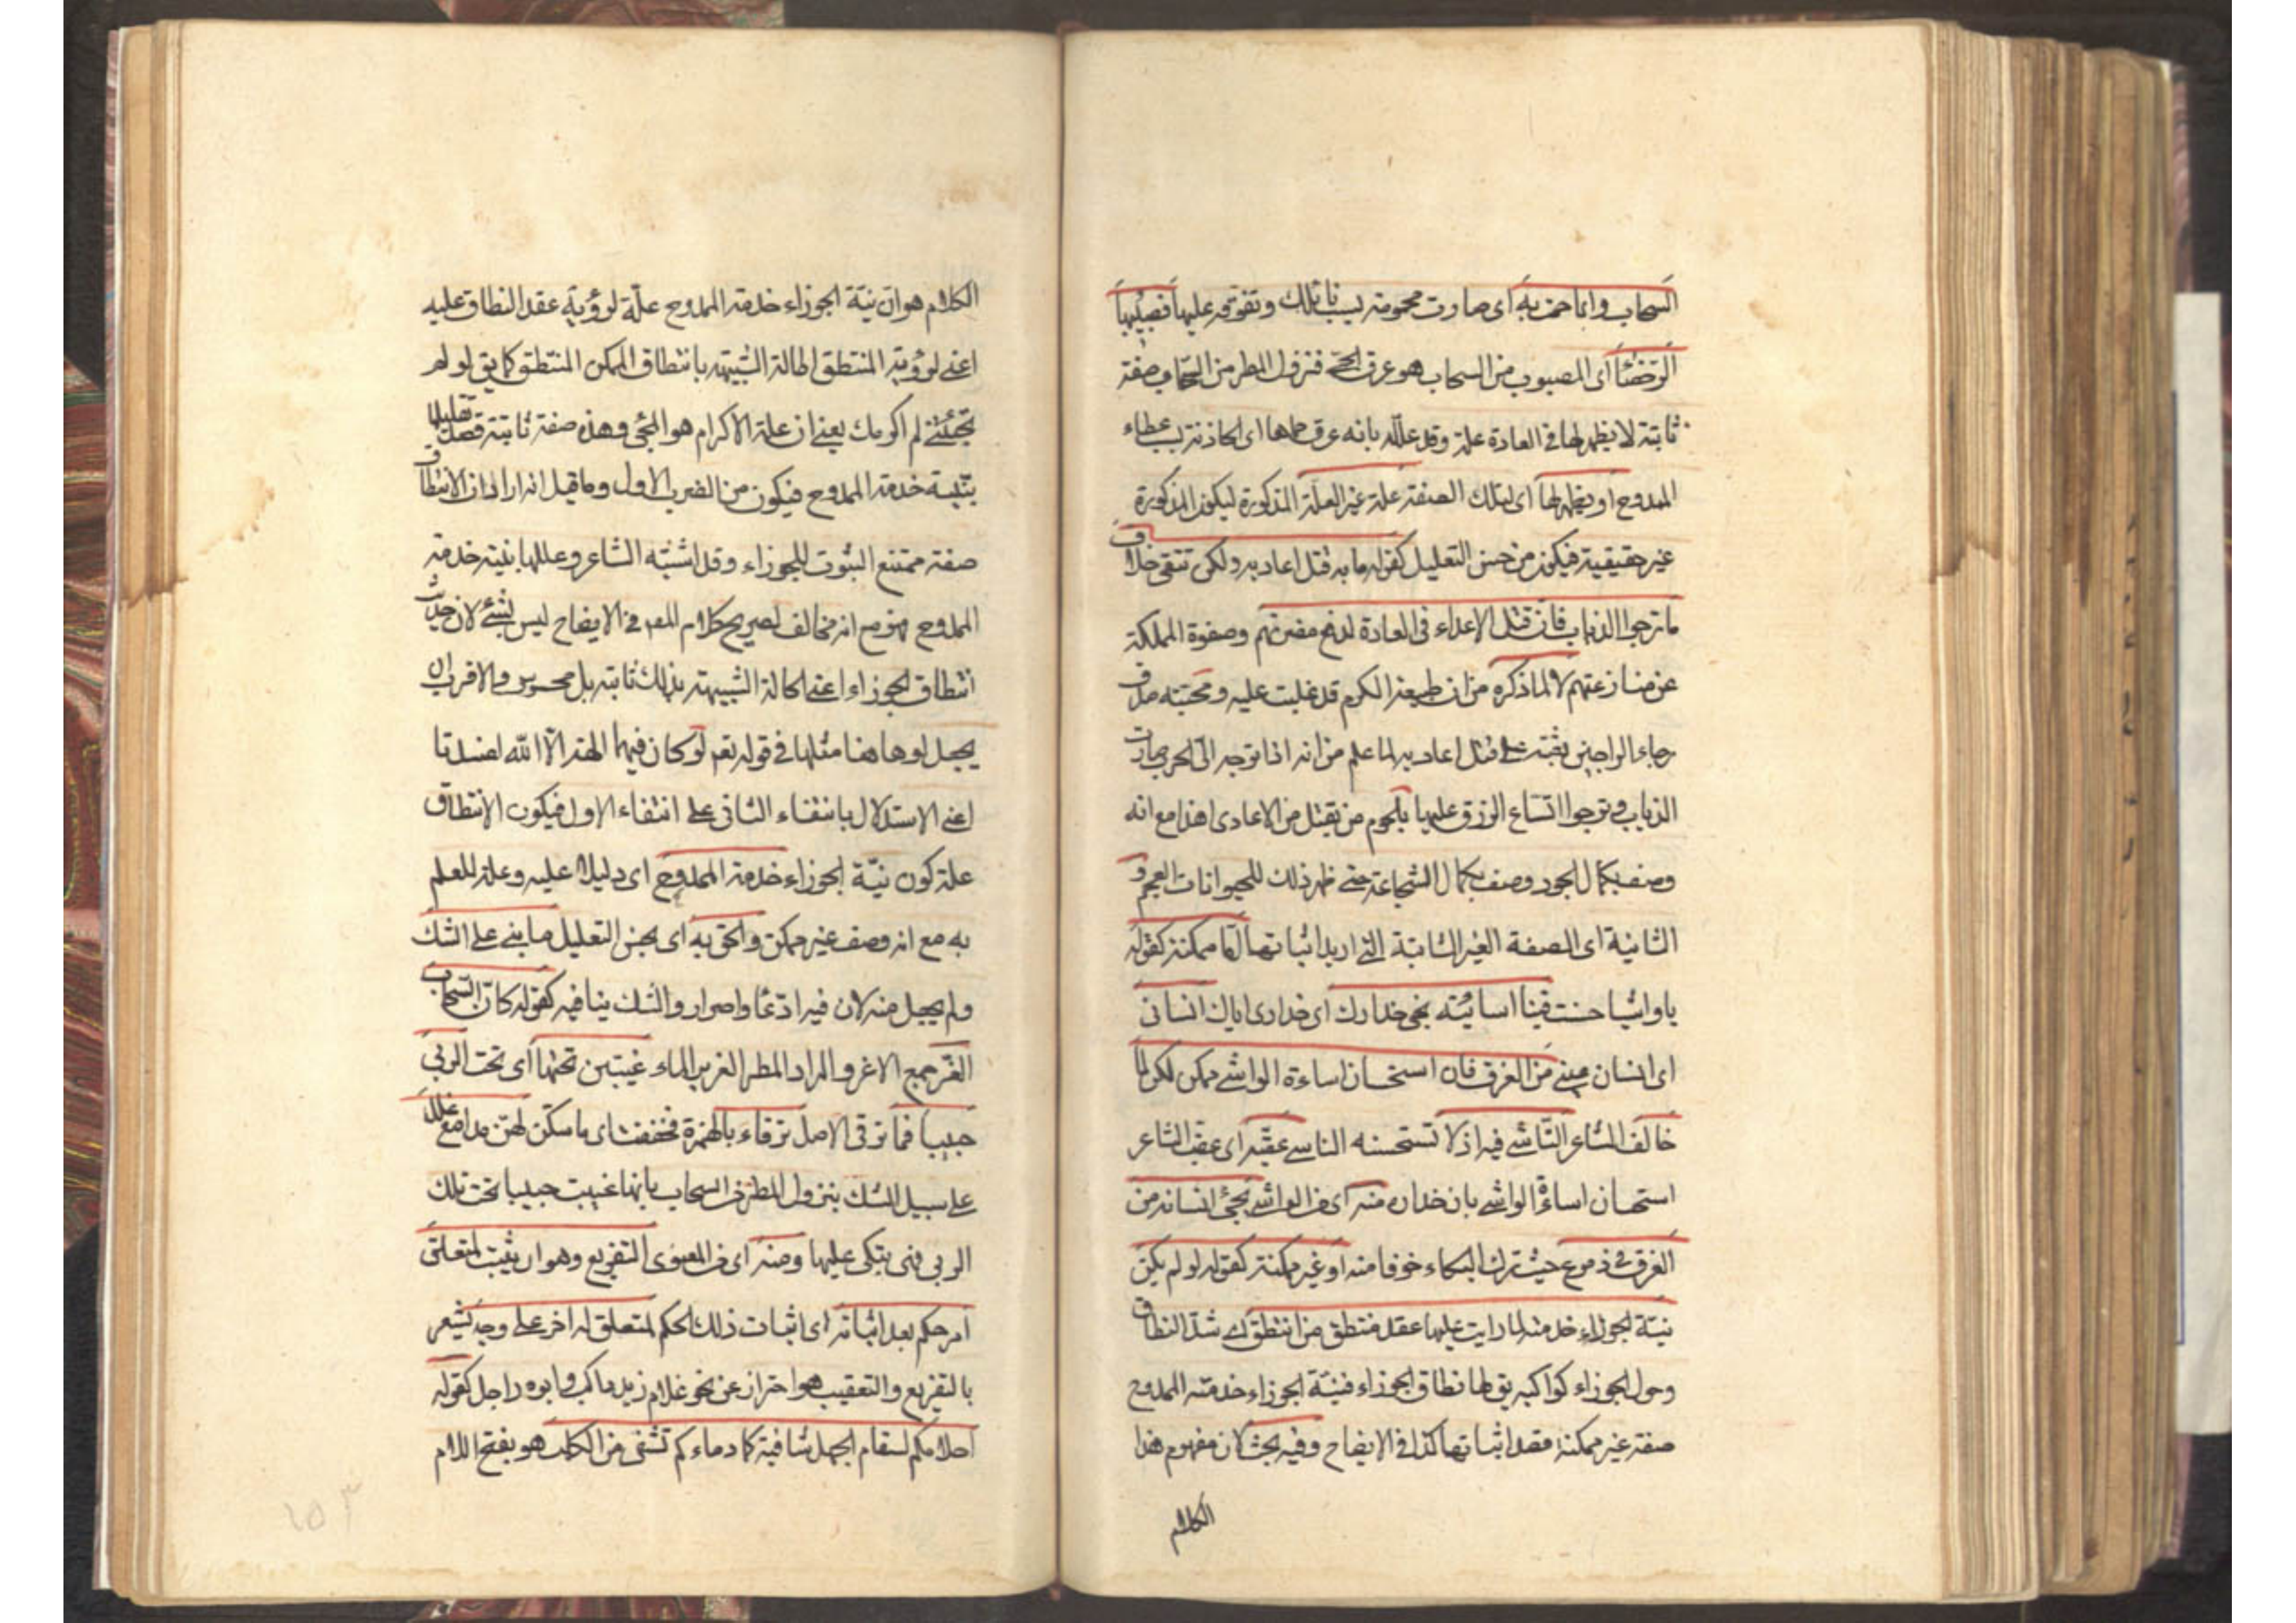 السحاب وانما حمت به اى صارت محمومة بسبب نائلك وتفوقه عليها فصبيبها
الرحضاء اى المصبوب من السحاب هو عرق الحمى فنزول المطر من السحاب صفة
ثابتة لا يظهر لها فى العادة علة وقد علله بانه عرق حماها اى الحادثة بسبب عطاء
الممدوح او يظهر لها اى لتلك الصفة علة غير العلة المذكورة ليكون المذكورة
غير حقيقية فيكون من حسن التعليل كقوله ما به قتل اعاديه ولكن تتقى خلاف
ما ترجوا الذئاب فان قتل الاعداء فى العادة لدفع مضرتهم وصفوة المملكة
عن منازعتهم لا لما ذكره من ان طبيعة الكرم قد غلبت عليه ومحبته صدق
رجاء الراجين بعثت على قتل اعاديه لما علم من انه اذا توجه الى الحرب صارت
الذئاب ترجوا اتساع الرزق عليها بلحوم من يقتل من الاعادى هذا مع انه
وصف بكمال الجود وصف بكمال الشجاعة حتى ظهر ذلك للحيوانات العجم و
الثانية اى الصفة الغير الثابتة التى اريد اثباتها اما ممكنة كقوله
يا واشيا حسنت فينا اسائته نجى حذارك اى حذارى اياك انسانى
اى انسان عينى من الغرق فان استحسان اساءة الواشى ممكن لكن لما
خالف الشاعر الناس فيه اذ لا تستحسنه الناس عقبه اى عقب الشاعر
استحسان اساءة الواشى بان حذاره منه اى من الواشى نجى انسانه من
الغرق فى دموع حيث ترك البكاء خوفا منه او غير ممكنة كقوله لو لم يكن
نية الجوزاء خدمته لما رايت عليها عقد منتطق من انتطق اى شد النطاق
وحول الجوزاء كواكب يق لها نطاق الجوزاء فنية الجوزاء خدمته الممدوح
صفة غير ممكنة قصد اثباتها كذا فى الايضاح وفيه بحث لان مفهوم هذا
الكلام
الكلام هو ان نية الجوزاء خدمة الممدوح علة لرؤية عقد النطاق عليه
اعنى لرؤية المنتطق الحالة الشبيهة بانتطاق المنتطق كما يق لو لم
تجئنى لم اكرمك يعنى ان علة الاكرام هو المجئ وهذه صفة ثابتة قصد تعليلها
بنية خدمة الممدوح فيكون من الضرب الاول وما قيل انه اراد ان الانتطاق
صفة ممتنع الثبوت للجوزاء وقد اثبته الشاعر وعللها بنية خدمة
الممدوح فهو مع انه مخالف لصريح كلام المصر فى الايضاح ليس بشئ لان حديث
انتطاق الجوزاء اعنى الحالة الشبيهة بذلك ثابتة بل محسوس والاقرب ان
يجعل لو هاهنا مثلها فى قوله تعم لو كان فيهما الهة الا الله لفسدتا
اعنى الاستدلال بانتفاء الثانى على انتفاء الاول فيكون الانتطاق
علة كون نية الجوزاء خدمة الممدوح اى دليلا عليه وعلة للعلم
به مع انه وصف غير ممكن والحق به اى بحسن التعليل ما بنى على الشك
ولم يجعل منه لان فيه ادعا واصرار والشك ينافيه كقوله كان السحاب
الغر جمع الاغر والمراد المطر الغزير الماء غيبن تحتها اى تحت الربى
حبيبا فما ترقى الاصل ترقاء بالهمزة فخففت اى ما سكن لهن مدامع علل
على سبيل الشك بنزول المطر من السحاب بانها غيبت حبيبا تحت تلك
الربى فهى تبكى عليها ومنه اى من المعنوى التفريع وهو ان يثبت لمتعلق
امر حكم بعد اثباته اى اثبات ذلك الحكم لمتعلق له اخر على وجه يشعر
بالتفريع والتعقيب هو احتراز عن نحو غلام زيد راكب وابوه راجل كقوله
احلامكم لسقام الجهل شافية كما دماءكم تشفى من الكلب هو بفتح اللام